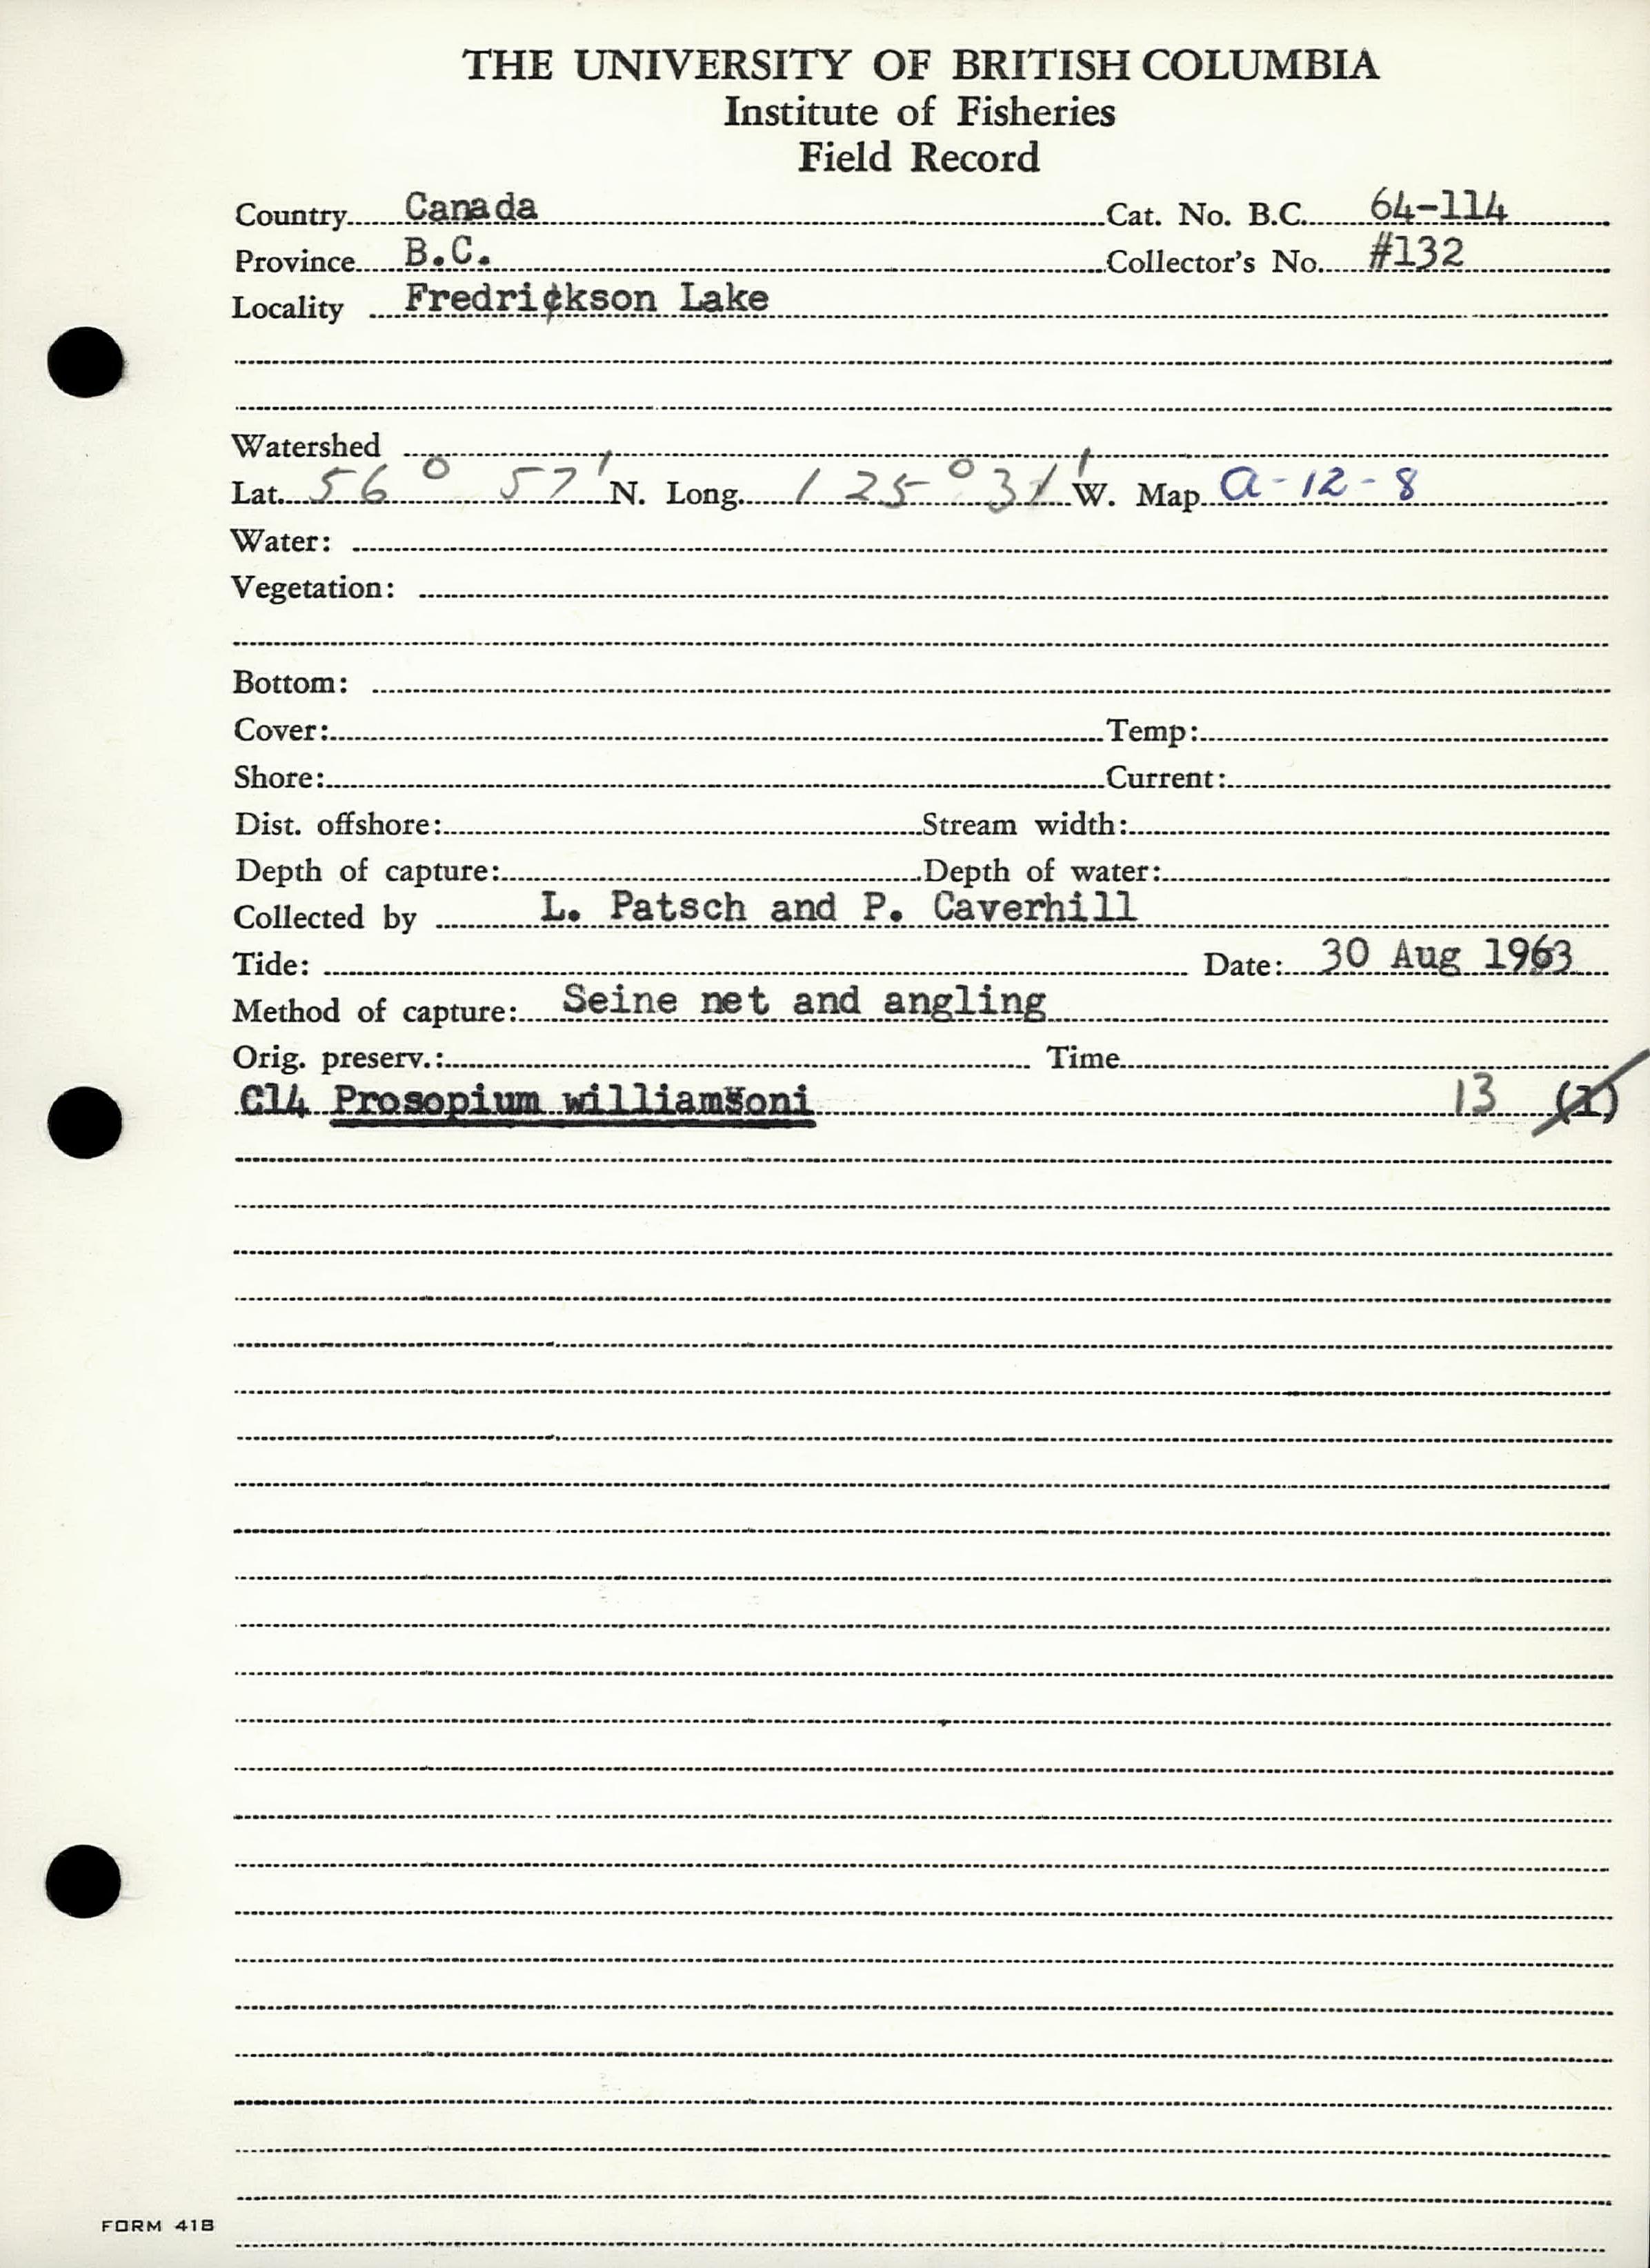 THE UNIVERSITY OF BRITISH COLUMBIA
Institute of Fisheries
Field Record
Country Canada Cat. No. B.C. 64-114
Province B.C. Collector's No. #132
Locality Fredrickson Lake
Watershed
Lat. 56° 57' N. Long. 125° 31' W. Map a-12-8
Water:
Vegetation:
Bottom:
Cover: Temp:
Shore: Current:
Dist. offshore: Stream width:
Depth of capture: Depth of water:
Collected by L. Patsch and P. Caverhill
Tide: Date: 30 Aug 1963
Method of capture: Seine net and angling
Orig. preserv.: Time
C14 Prosopium williamsoni 13 (1)
FORM 41B